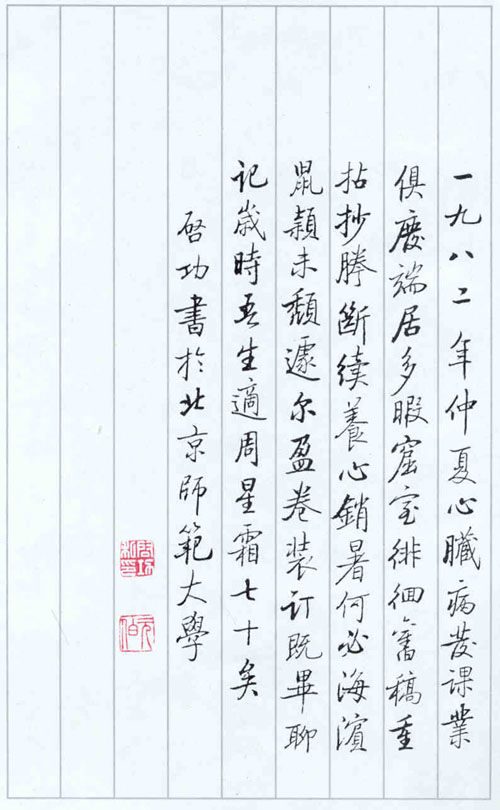 一九八二年仲夏心臟病發課業
俱廢端居多暇窟室徘徊舊稿重
拈抄謄斷續養心銷暑何必海濱
鼠穎未頹遽尔盈卷装订既畢聊
记歲時吾生適周星霜七十矣
啓功書於北京師範大學
元伯